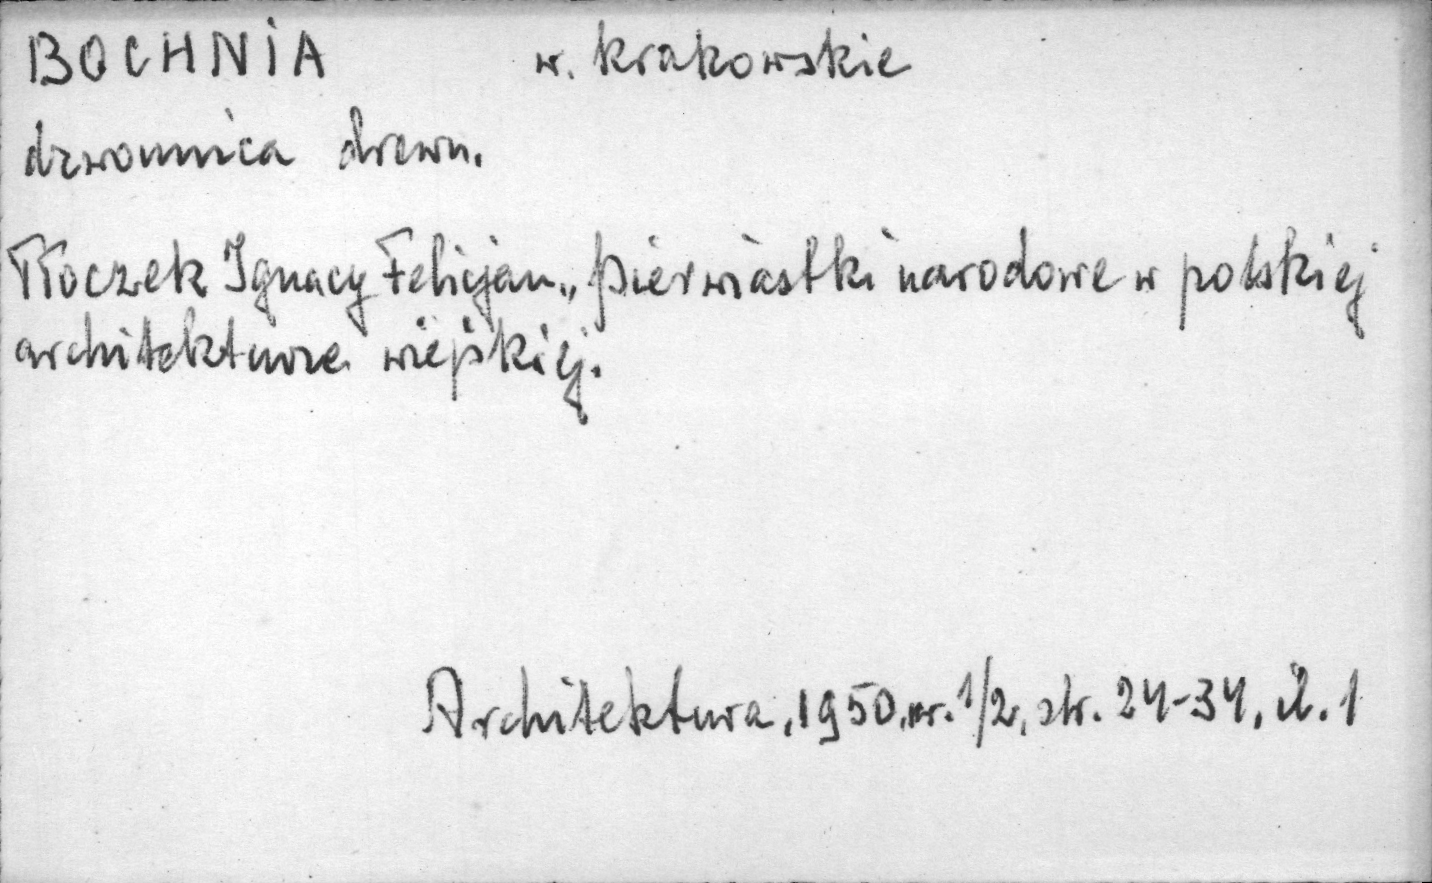 BOCHNIA w. krakowskie
dzwonnica drewn.
Tłoczek Ignacy Felicjan „Pierwiastki narodowe w polskiej
architekturze wiejskiej.
Architektura, 1950, nr. 1/2, str. 24-34, il. 1